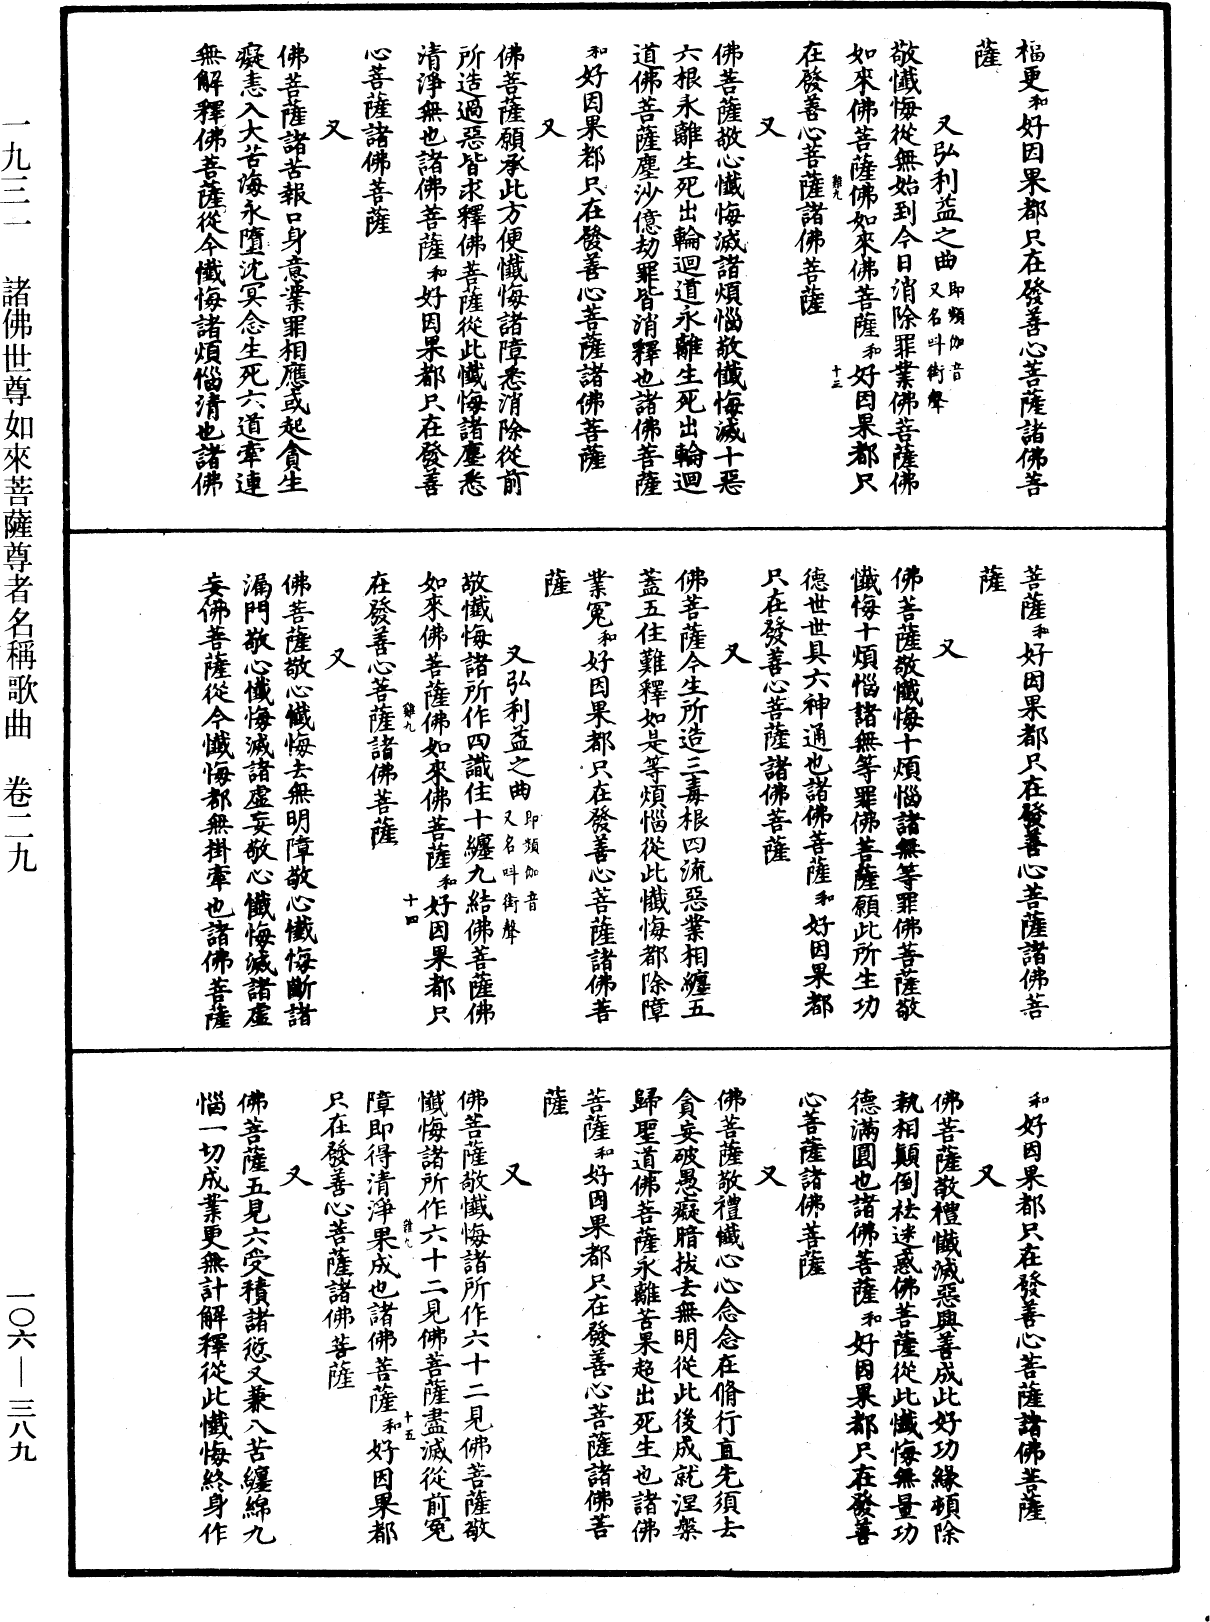 福更和好因果都只在發善心菩薩諸佛菩
薩
又弘利益之曲即頻伽音
又名呌街聲
敬懺悔從無始到今日消除罪業佛菩薩佛
如來佛菩薩佛如來佛菩薩和好因果都只
在發善心菩薩諸佛菩薩
難九
十三
又
佛菩薩敬心懺悔滅諸煩惱敬懺悔滅十惡
六根永離生死出輪迴道永離生死出輪迴
道佛菩薩塵沙億劫罪皆消釋也諸佛菩薩
和好因果都只在發善心菩薩諸佛菩薩
又
佛菩薩願承此方便懺悔諸障悉消除從前
所造過惡皆求釋佛菩薩從此懺悔諸塵悉
清淨無也諸佛菩薩和好因果都只在發善
心菩薩諸佛菩薩
又
佛菩薩諸苦報口身意業罪相應或起貪生
癡恚入大苦海永墮沈冥念生死六道牽連
無解釋佛菩薩從今懺悔諸煩惱清也諸佛
菩薩和好因果都只在發善心菩薩諸佛菩
薩
又
佛菩薩敬懺悔十煩惱諸無等罪佛菩薩敬
懺悔十煩惱諸無等罪佛菩薩願此所生功
德世世具六神通也諸佛菩薩和好因果都
只在發善心菩薩諸佛菩薩
又
佛菩薩今生所造三毒根四流惡業相纏五
蓋五住難釋如是等煩惱從此懺悔都除障
業冤和好因果都只在發善心菩薩諸佛菩
薩
又弘利益之曲即頻伽音
又名呌街聲
敬懺悔諸所作四識住十纏九結佛菩薩佛
如來佛菩薩佛如來佛菩薩和好因果都只
在發善心菩薩諸佛菩薩
難九
十四
又
佛菩薩敬心懺悔去無明障敬心懺悔斷諸
漏門敬心懺悔滅諸虛妄敬心懺悔滅諸虛
妄佛菩薩從今懺悔都無掛牽也諸佛菩薩
和好因果都只在發善心菩薩諸佛菩薩
又
佛菩薩敬禮懺滅惡興善成此好功緣頓除
執相顛倒祛迷惑佛菩薩從此懺悔無量功
德滿圓也諸佛菩薩和好因果都只在發善
心菩薩諸佛菩薩
又
佛菩薩敬禮懺心心念念在脩行直先須去
貪妄破愚癡暗拔去無明從此後成就涅槃
歸聖道佛菩薩永離苦果超出死生也諸佛
菩薩和好因果都只在發善心菩薩諸佛菩
薩
又
佛菩薩敬懺悔諸所作六十二見佛菩薩敬
懺悔諸所作六十二見佛菩薩盡滅從前冤
障即得清淨果成也諸佛菩薩和好因果都
只在發善心菩薩諸佛菩薩
難九
十五
又
佛菩薩五見六受積諸愆又兼八苦纏綿九
惱一切成業更無計解釋從此懺悔終身作
一九三一 諸佛世尊如來菩薩尊者名稱歌曲 卷二九
一〇六—三八九